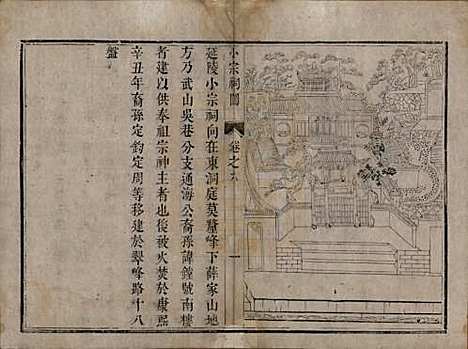 小宗祠圖
卷之六
一
延陵小宗祠向在東洞庭莫釐峰下薛家山地
方乃武山吳巷分支通海公裔孫諱鐘號南樓
者建以供奉祖宗神主者也後被火焚於康熙
辛丑年裔孫定鈞定周等移建於翠峰路十八
盤